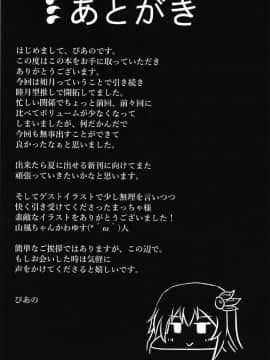 あとがき
はじめまして、ぴあのです。
この度はこの本をお手に取っていただき
ありがとうございます。
今回は如月っていうことで引き続き
睦月型推しで開拓してました。
忙しい関係でちょっと前回、前々回に
比べてボリュームが少なくなって
しまいましたが、何だかんだで
今回も無事出すことができて
良かったなぁと思いました。
出来たら夏に出せる新刊に向けてまた
頑張っていきたいかなと思います。
そしてゲストイラストで少し無理を言いつつ
快く引き受けてくださったまっちゃ様
素敵なイラストをありがとうございました!
山風ちゃんかわゆす(*´ω`)人
簡単なご挨拶ではありますが、この辺で。
もしお会いした時は気軽に
声をかけてくださると嬉しいです。
ぴあの